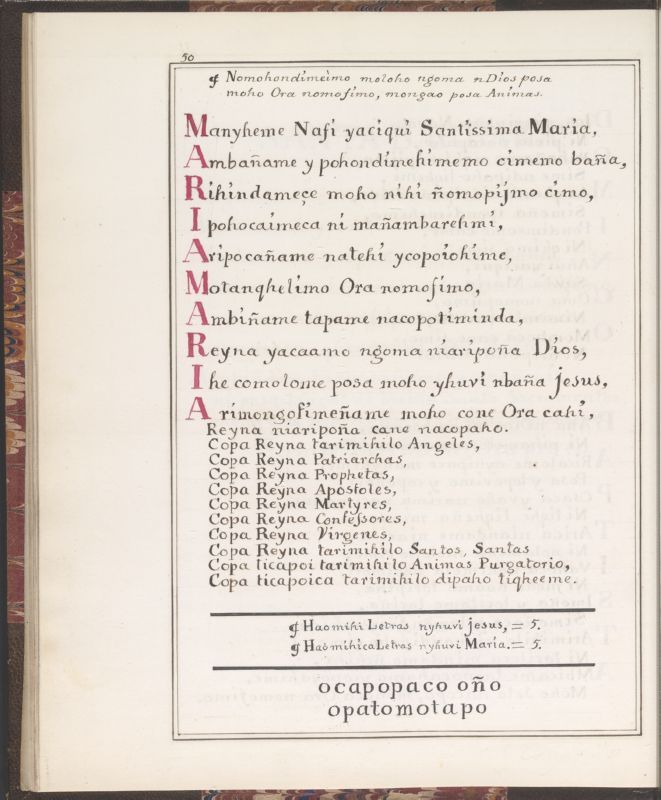 50
¶ Nomohondimeimo moloho ngoma nDios posa
moho Ora nomosimo, mongao posa Animas.
Manyheme Nasi yaciqui Santissima Maria,
Ambañame y pohondimehimemo cimemo baña,
Rihindameçe moho nihi ñomopijmo cimo,
Ipohocaimeca ni mañambarehmi,
Aripocañame natehi ycopoiohime,
Motanqhelimo Ora nomosimo,
Ambiñame tapame nacopotiminda,
Reyna yacaamo ngoma niaripoña Dios,
Ihe comolome posa moho yhuvi nbaña jesus,
Arimongosimeñame moho cone Ora cahi,
Reyna niaripoña cane nacopaho.
Copa Reyna tarimihilo Angeles,
Copa Reyna Patriarchas,
Copa Reyna Prophetas,
Copa Reyna Apostoles,
Copa Reyna Martyres,
Copa Reyna Confessores,
Copa Reyna Virgenes,
Copa Reyna tarimihilo Santos, Santas
Copa ticapoi tarimihilo Animas Purgatorio,
Copa ticapoica tarimihilo dipaho tiqheeme.
¶ Haomihi Letras nyhuvi jesus, = 5.
¶ Haomihica Letras nyhuvi Maria. = 5.
ocapopaco oño
opatomotapo